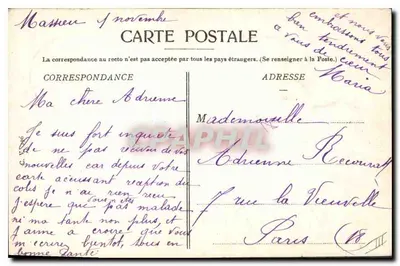 Masseu 1 novembre
et nous vous
embrassons tous
bien tendrement
a vous de cœur
Maria
CARTE POSTALE
La correspondance au recto n'est pas acceptée par tous les pays étrangers. (Se renseigner à la Poste.)
CORRESPONDANCE
ADRESSE
Ma chère Adrienne
Je suis fort inquiète
de ne pas recevoir de vos
nouvelles car depuis votre
carte accusant reception du
colis je n'ai rien reçu
j'espère que vous n'etes pas malade
ni ma tante non plus, et
j'aime a croire que vous
m'ecrirez bientot, tous en
bonne santé
Mademoiselle
Adrienne
7 rue la Vieuville
Paris